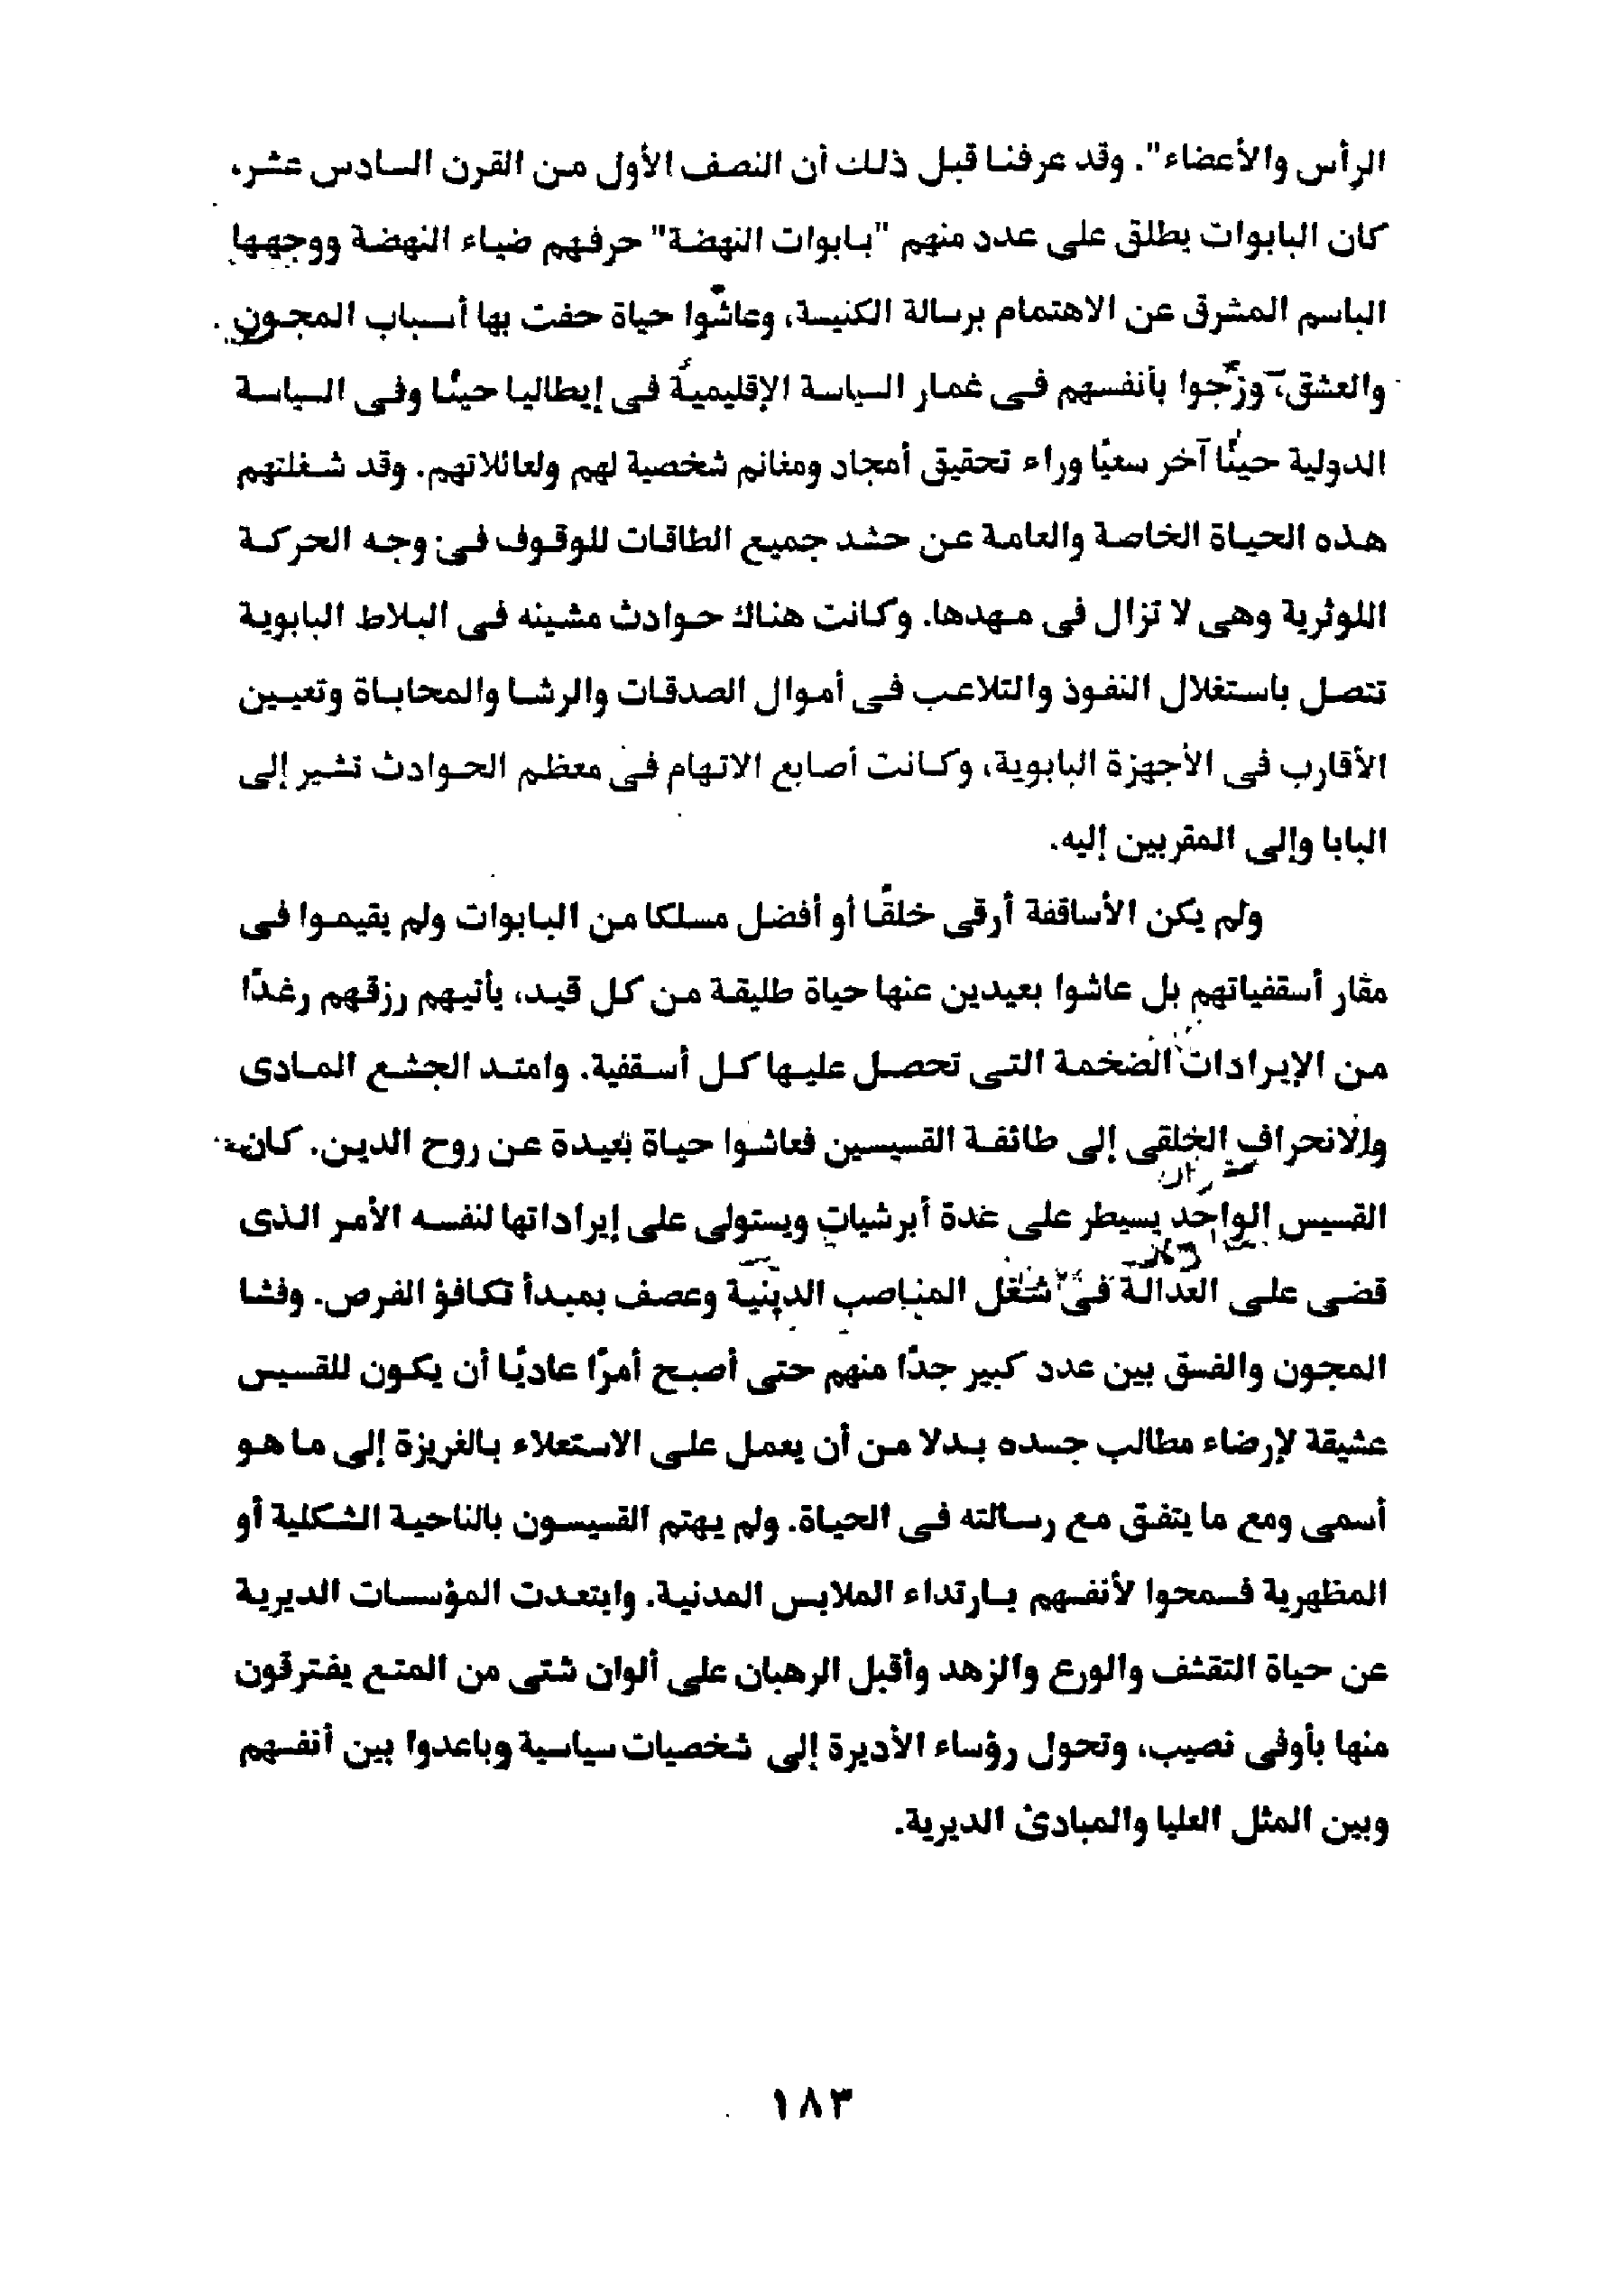 الرأس والأعضاء". وقد عرفنا قبل ذلك أن النصف الأول من القرن السادس عشر،
كان البابوات يطلق على عدد منهم "بابوات النهضة" حرفهم ضياء النهضة ووجهها
الباسم المشرق عن الاهتمام برسالة الكنيسة، وعاشوا حياة حفت بها أسباب المجون
والعشق، وزجوا بأنفسهم فى غمار السياسة الإقليمية فى إيطاليا حينًا وفى السياسة
الدولية حينًا آخر سعيًا وراء تحقيق أمجاد ومغانم شخصية لهم ولعائلاتهم. وقد شغلتهم
هذه الحياة الخاصة والعامة عن حشد جميع الطاقات للوقوف فى وجه الحركة
اللوثرية وهى لا تزال فى مهدها. وكانت هناك حوادث مشينه فى البلاط البابوية
تتصل باستغلال النفوذ والتلاعب فى أموال الصدقات والرشا والمحاباة وتعيين
الأقارب فى الأجهزة البابوية، وكانت أصابع الاتهام فى معظم الحوادث تشير إلى
البابا وإلى المقربين إليه.
ولم يكن الأساقفة أرقى خلقًا أو أفضل مسلكا من البابوات ولم يقيموا فى
مقار أسقفياتهم بل عاشوا بعيدين عنها حياة طليقة من كل قيد، يأتيهم رزقهم رغدًا
من الإيرادات الضخمة التى تحصل عليها كل أسقفية. وامتد الجشع المادى
والانحراف الخلقى إلى طائفة القسيسين فعاشوا حياة بعيدة عن روح الدين. كان
القسيس الواحد يسيطر على عدة أبرشيات ويستولى على إيراداتها لنفسه الأمر الذى
قضى على العدالة فى شغل المناصب الدينية وعصف بمبدأ تكافؤ الفرص. وفشا
المجون والفسق بين عدد كبير جدًا منهم حتى أصبح أمرًا عاديًا أن يكون للقسيس
عشيقة لإرضاء مطالب جسده بدلا من أن يعمل على الاستعلاء بالغريزة إلى ما هو
أسمى ومع ما يتفق مع رسالته فى الحياة. ولم يهتم القسيسون بالناحية الشكلية أو
المظهرية فسمحوا لأنفسهم بارتداء الملابس المدنية. وابتعدت المؤسسات الديرية
عن حياة التقشف والورع والزهد وأقبل الرهبان على ألوان شتى من المتع يغترقون
منها بأوفى نصيب، وتحول رؤساء الأديرة إلى شخصيات سياسية وباعدوا بين أنفسهم
وبين المثل العليا والمبادئ الديرية.
١٨٣